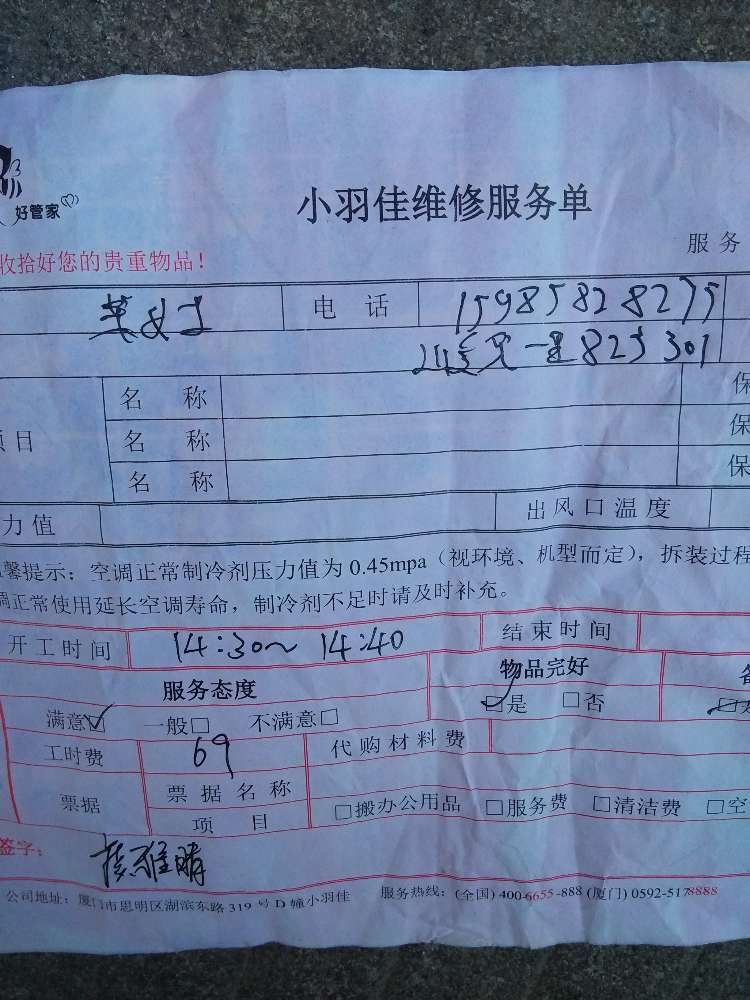 好管家
小羽佳维修服务单
收拾好您的贵重物品！
服务
女士 电话 15985828275
一里825301
名称 保
项目 名称 保
名称 保
力值 出风口温度
馨提示：空调正常制冷剂压力值为0.45mpa（视环境、机型而定），拆装过程
调正常使用延长空调寿命，制冷剂不足时请及时补充。
开工时间 14:30～14:40 结束时间
服务态度 物品完好
满意☑ 一般□ 不满意□ ☑是 □否
工时费 69 代购材料费
票据 票据名称 □搬办公用品 □服务费 □清洁费 □空
项目
签字：
公司地址：厦门市思明区湖滨东路319号D幢小羽佳 服务热线：(全国) 400-6655-888 (厦门) 0592-5178888